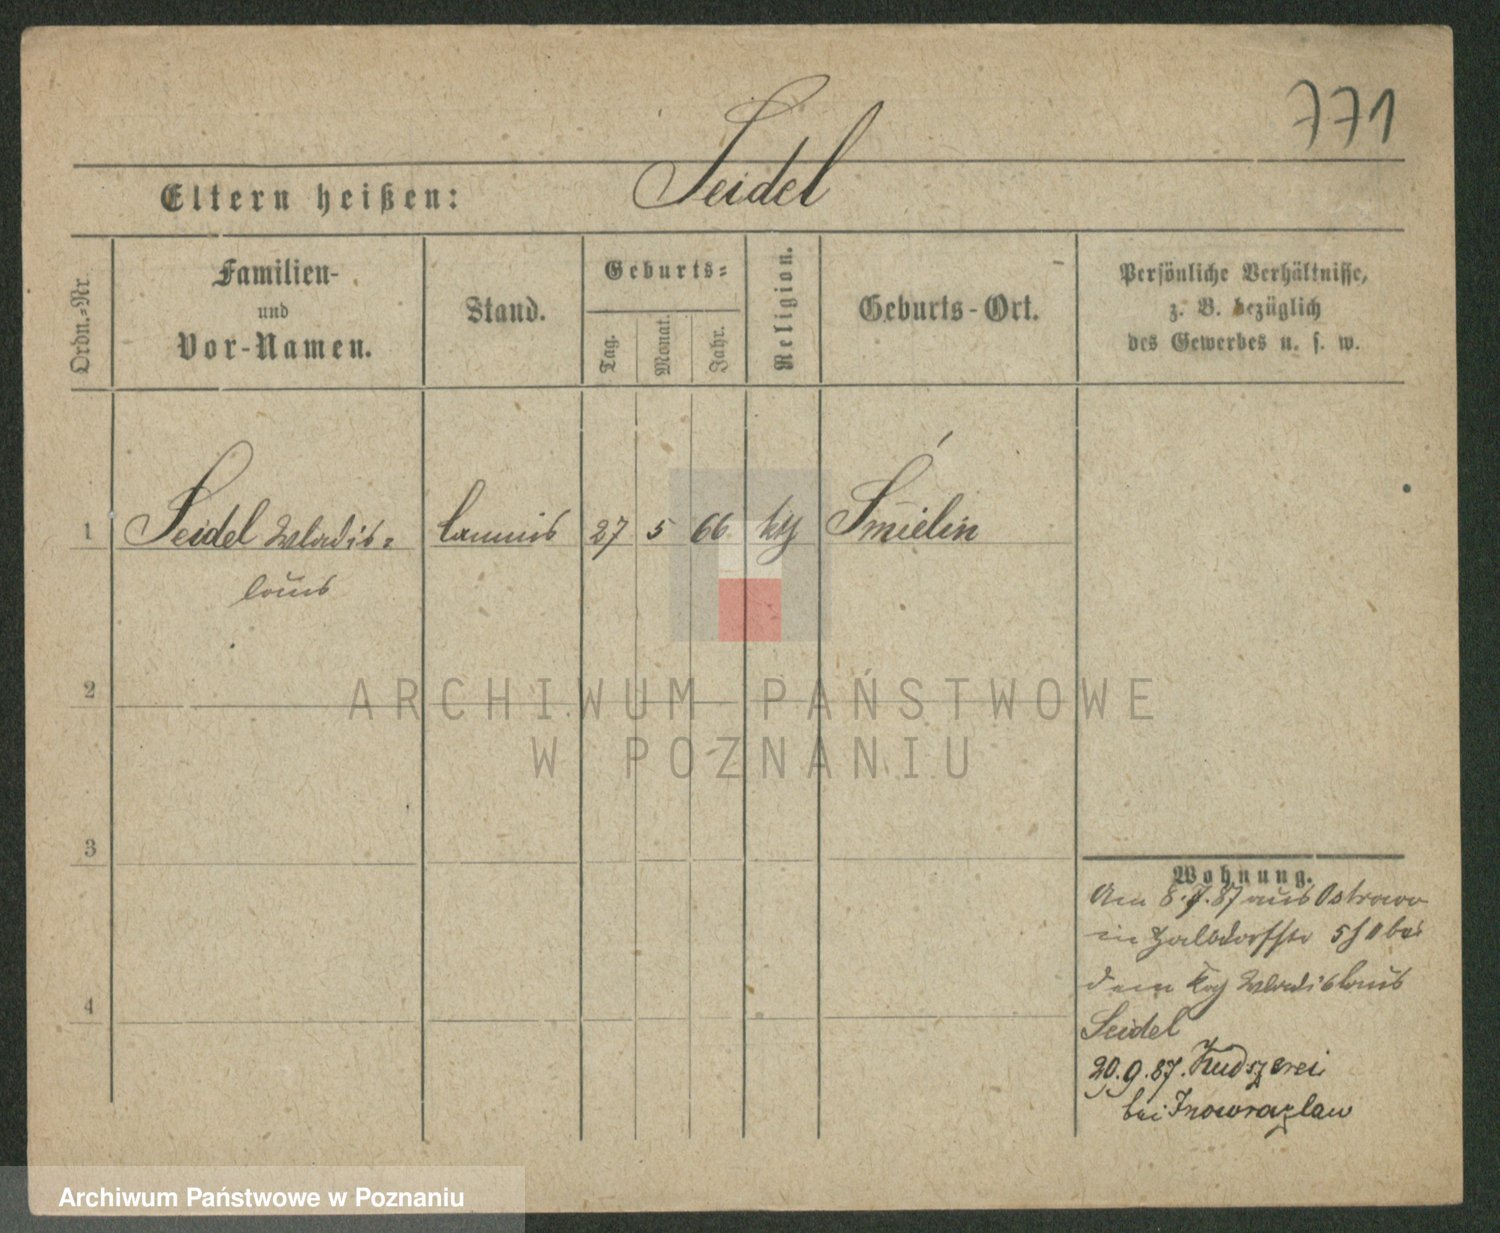 771
Seidel
Eltern heißen:
Ordn.-Nr.
Familien-
und
Vor-Namen.
Stand.
Geburts-
Tag.
Monat.
Jahr.
Religion.
Geburts-Ort.
Persönliche Verhältnisse,
z. B. bezüglich
des Gewerbes u. s. w.
1 Seidel Wladis- 27 5 66 kth Śmielin
laus
2
ARCHIWUM PAŃSTWOWE
W POZNANIU
3
Wohnung.
Am 8.7.87 aus Ostrowo
in 5 bei
dem Wladislaus
Seidel
4
20.9.87.
bei Inowrazlaw
Archiwum Państwowe w Poznaniu